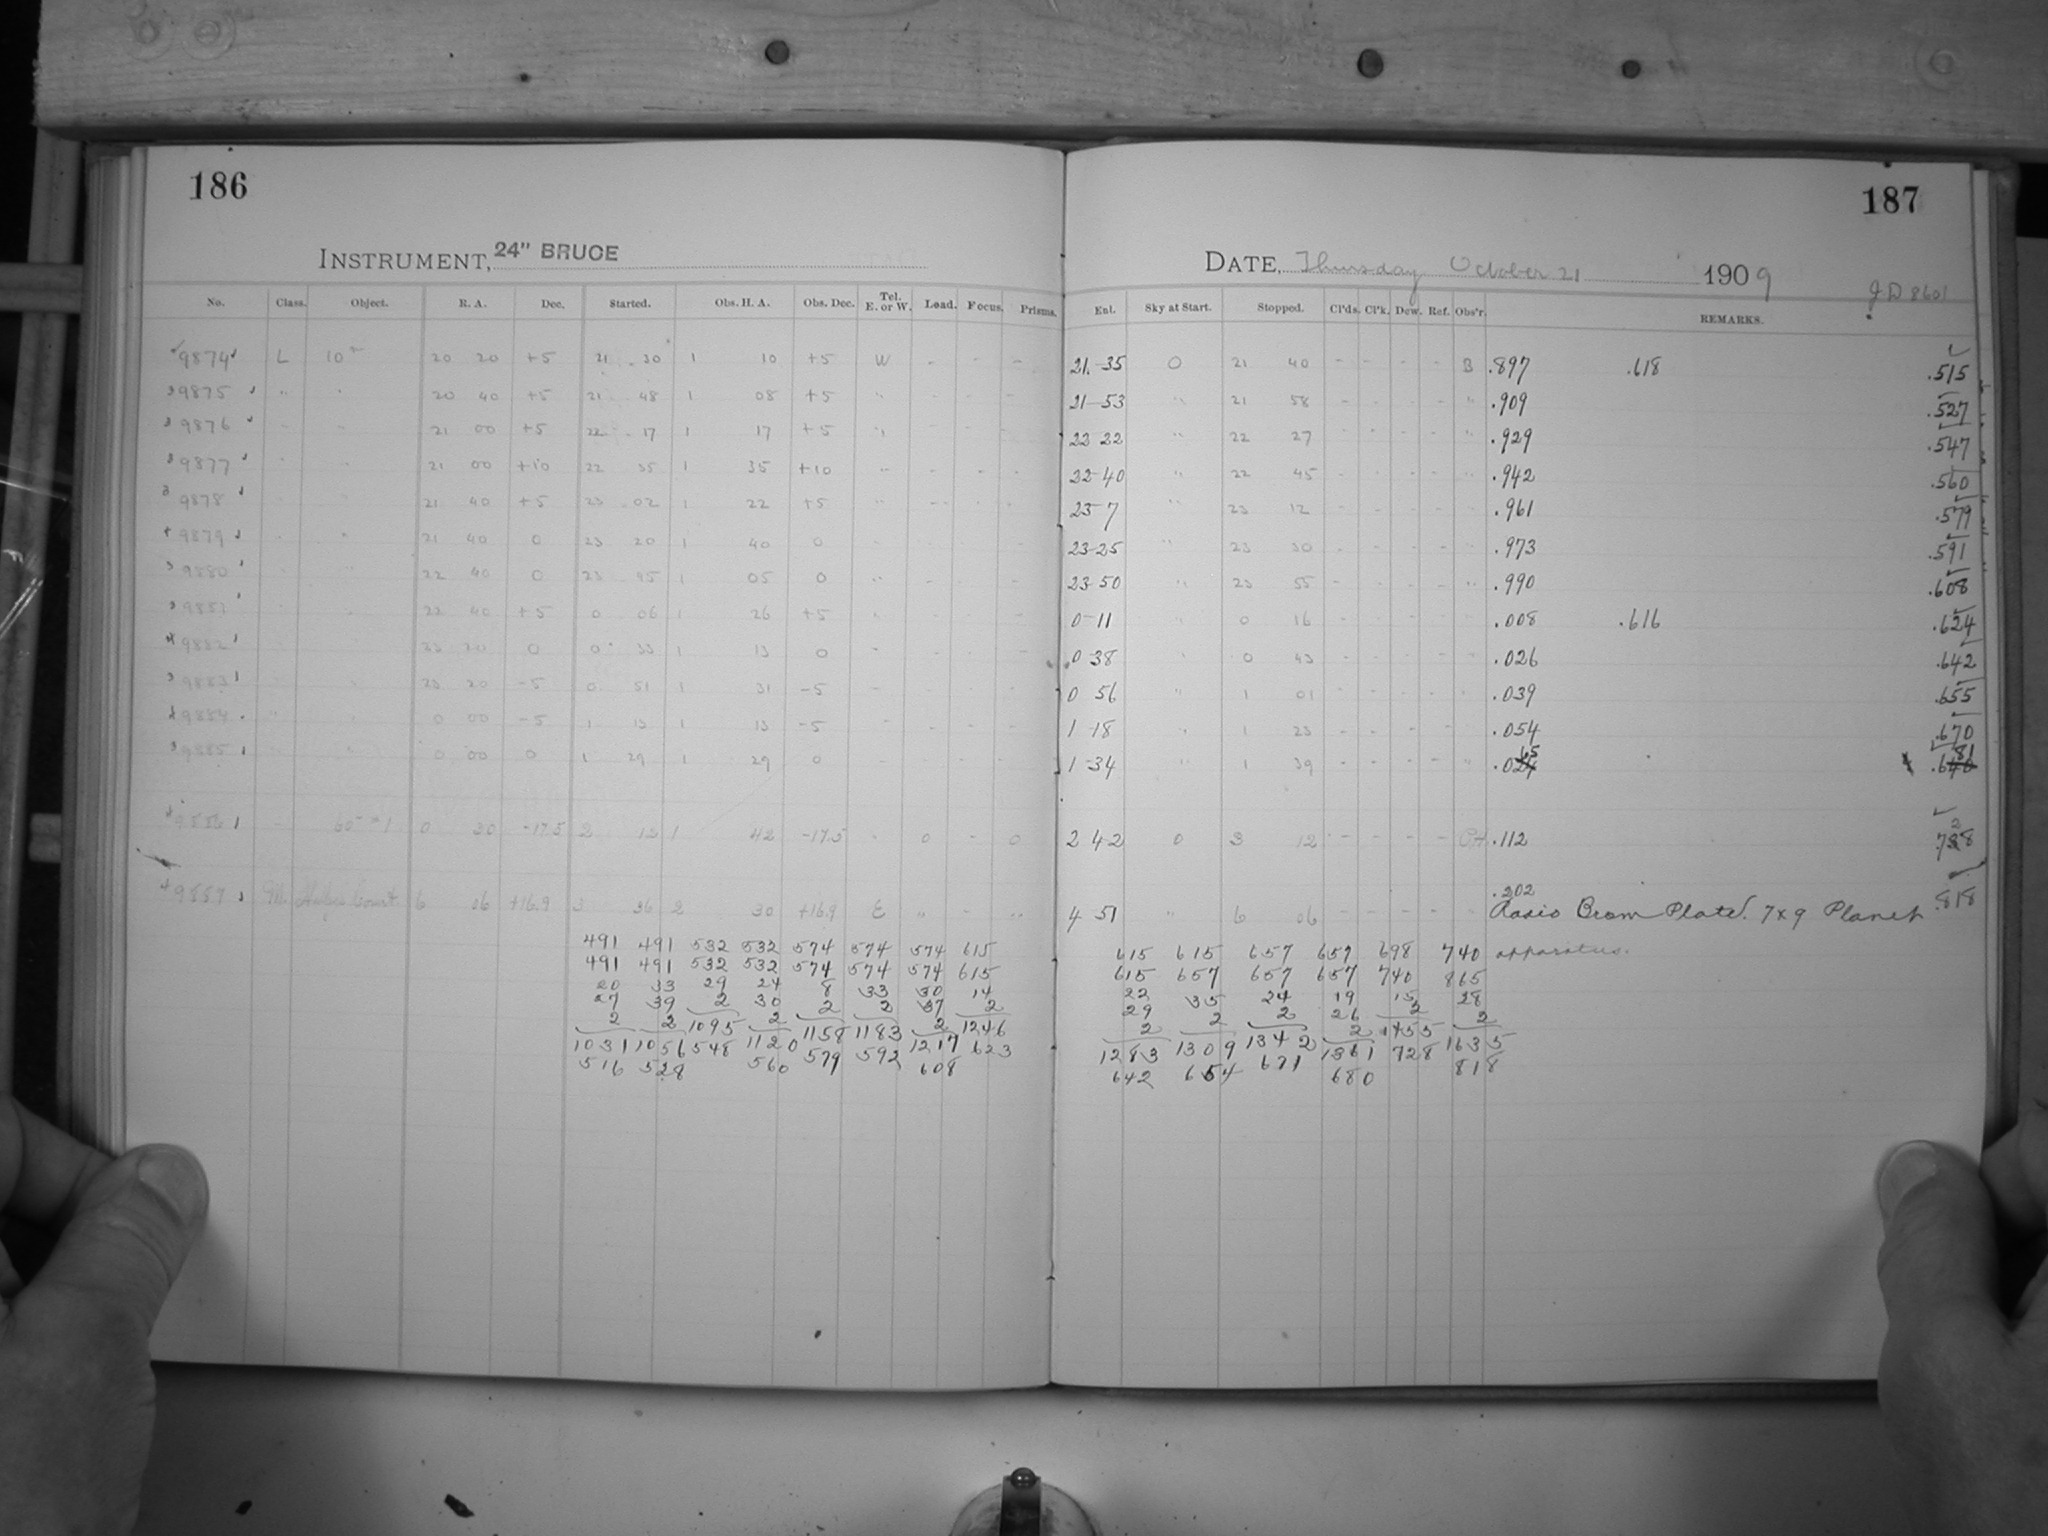 186
INSTRUMENT, 24" BRUCE
No. Class. Object. R. A. Dec. Started. Obs. H. A. Obs. Dec. Tel. E. or W. Load. Focus. Prisms.
9874 L 10m 20 20 +5 21 30 1 10 +5 W - - -
9875 " " 20 40 +5 21 48 1 08 +5 " - - -
9876 " " 21 00 +5 22 17 1 17 +5 " - - -
9877 " " 21 00 +10 22 35 1 35 +10 " - - -
9878 " " 21 40 +5 23 02 1 22 +5 " - - -
9879 " " 21 40 0 23 20 1 40 0 " - - -
9880 " " 22 40 0 23 45 1 05 0 " - - -
9881 " " 22 40 +5 0 06 1 26 +5 " - - -
9882 " " 23 20 0 0 33 1 13 0 " - - -
9883 " " 23 20 -5 0 51 1 31 -5 " - - -
9884 " " 0 00 -5 1 13 1 13 -5 " - - -
9885 " " 0 00 0 1 29 1 29 0 - - -
9886 - 60m 1 0 30 -17.5 2 12 1 42 -17.5 " 0 - 0
9887 Halleys Comet 6 06 +16.9 3 36 2 30 +16.9 E " - "
491 491 532 532 574 574 574 615
491 491 532 532 574 574 574 615
20 33 29 24 8 33 30 14
27 39 2 30 2 2 37 2
2 2 1095 2 1158 1183 2 1246
1031 1056 548 1120 579 592 1217 623
516 528 560 608
187
DATE, Thursday October 21 1909
J.D 8601
Enl. Sky at Start. Stopped. Cl'ds. Cl'k. Dew. Ref. Obs'r. REMARKS.
21-35 0 21 40 - - - - B .897 .618 .515
21-53 " 21 58 - - - - " .909 .527
22 22 " 22 27 - - - - " .929 .547
22-40 " 22 45 - - - - " .942 .560
23-7 " 23 12 - - - - " .961 .579
23-25 " 23 30 - - - - " .973 .591
23-50 " 23 55 - - - - " .990 .608
0-11 " 0 16 - - - - " .008 .616 .624
0-38 " 0 43 - - - - " .026 .642
0 56 " 1 01 - - - - " .039 .655
1-18 " 1 23 - - - - " .054 .670
1-34 " 1 39 - - - - " .065 .681
2 42 0 3 12 - - - - .112 .728
.202 .818
4 51 " 6 06 - - - - " Brom Plate. 7x9 Planet
apparatus.
615 615 657 657 698 740
615 657 657 657 740 865
22 35 24 19 15 28
29 2 2 26 2 2
2 1309 1342 2 1455 1635
1283 654 671 1361 728 818
642 680